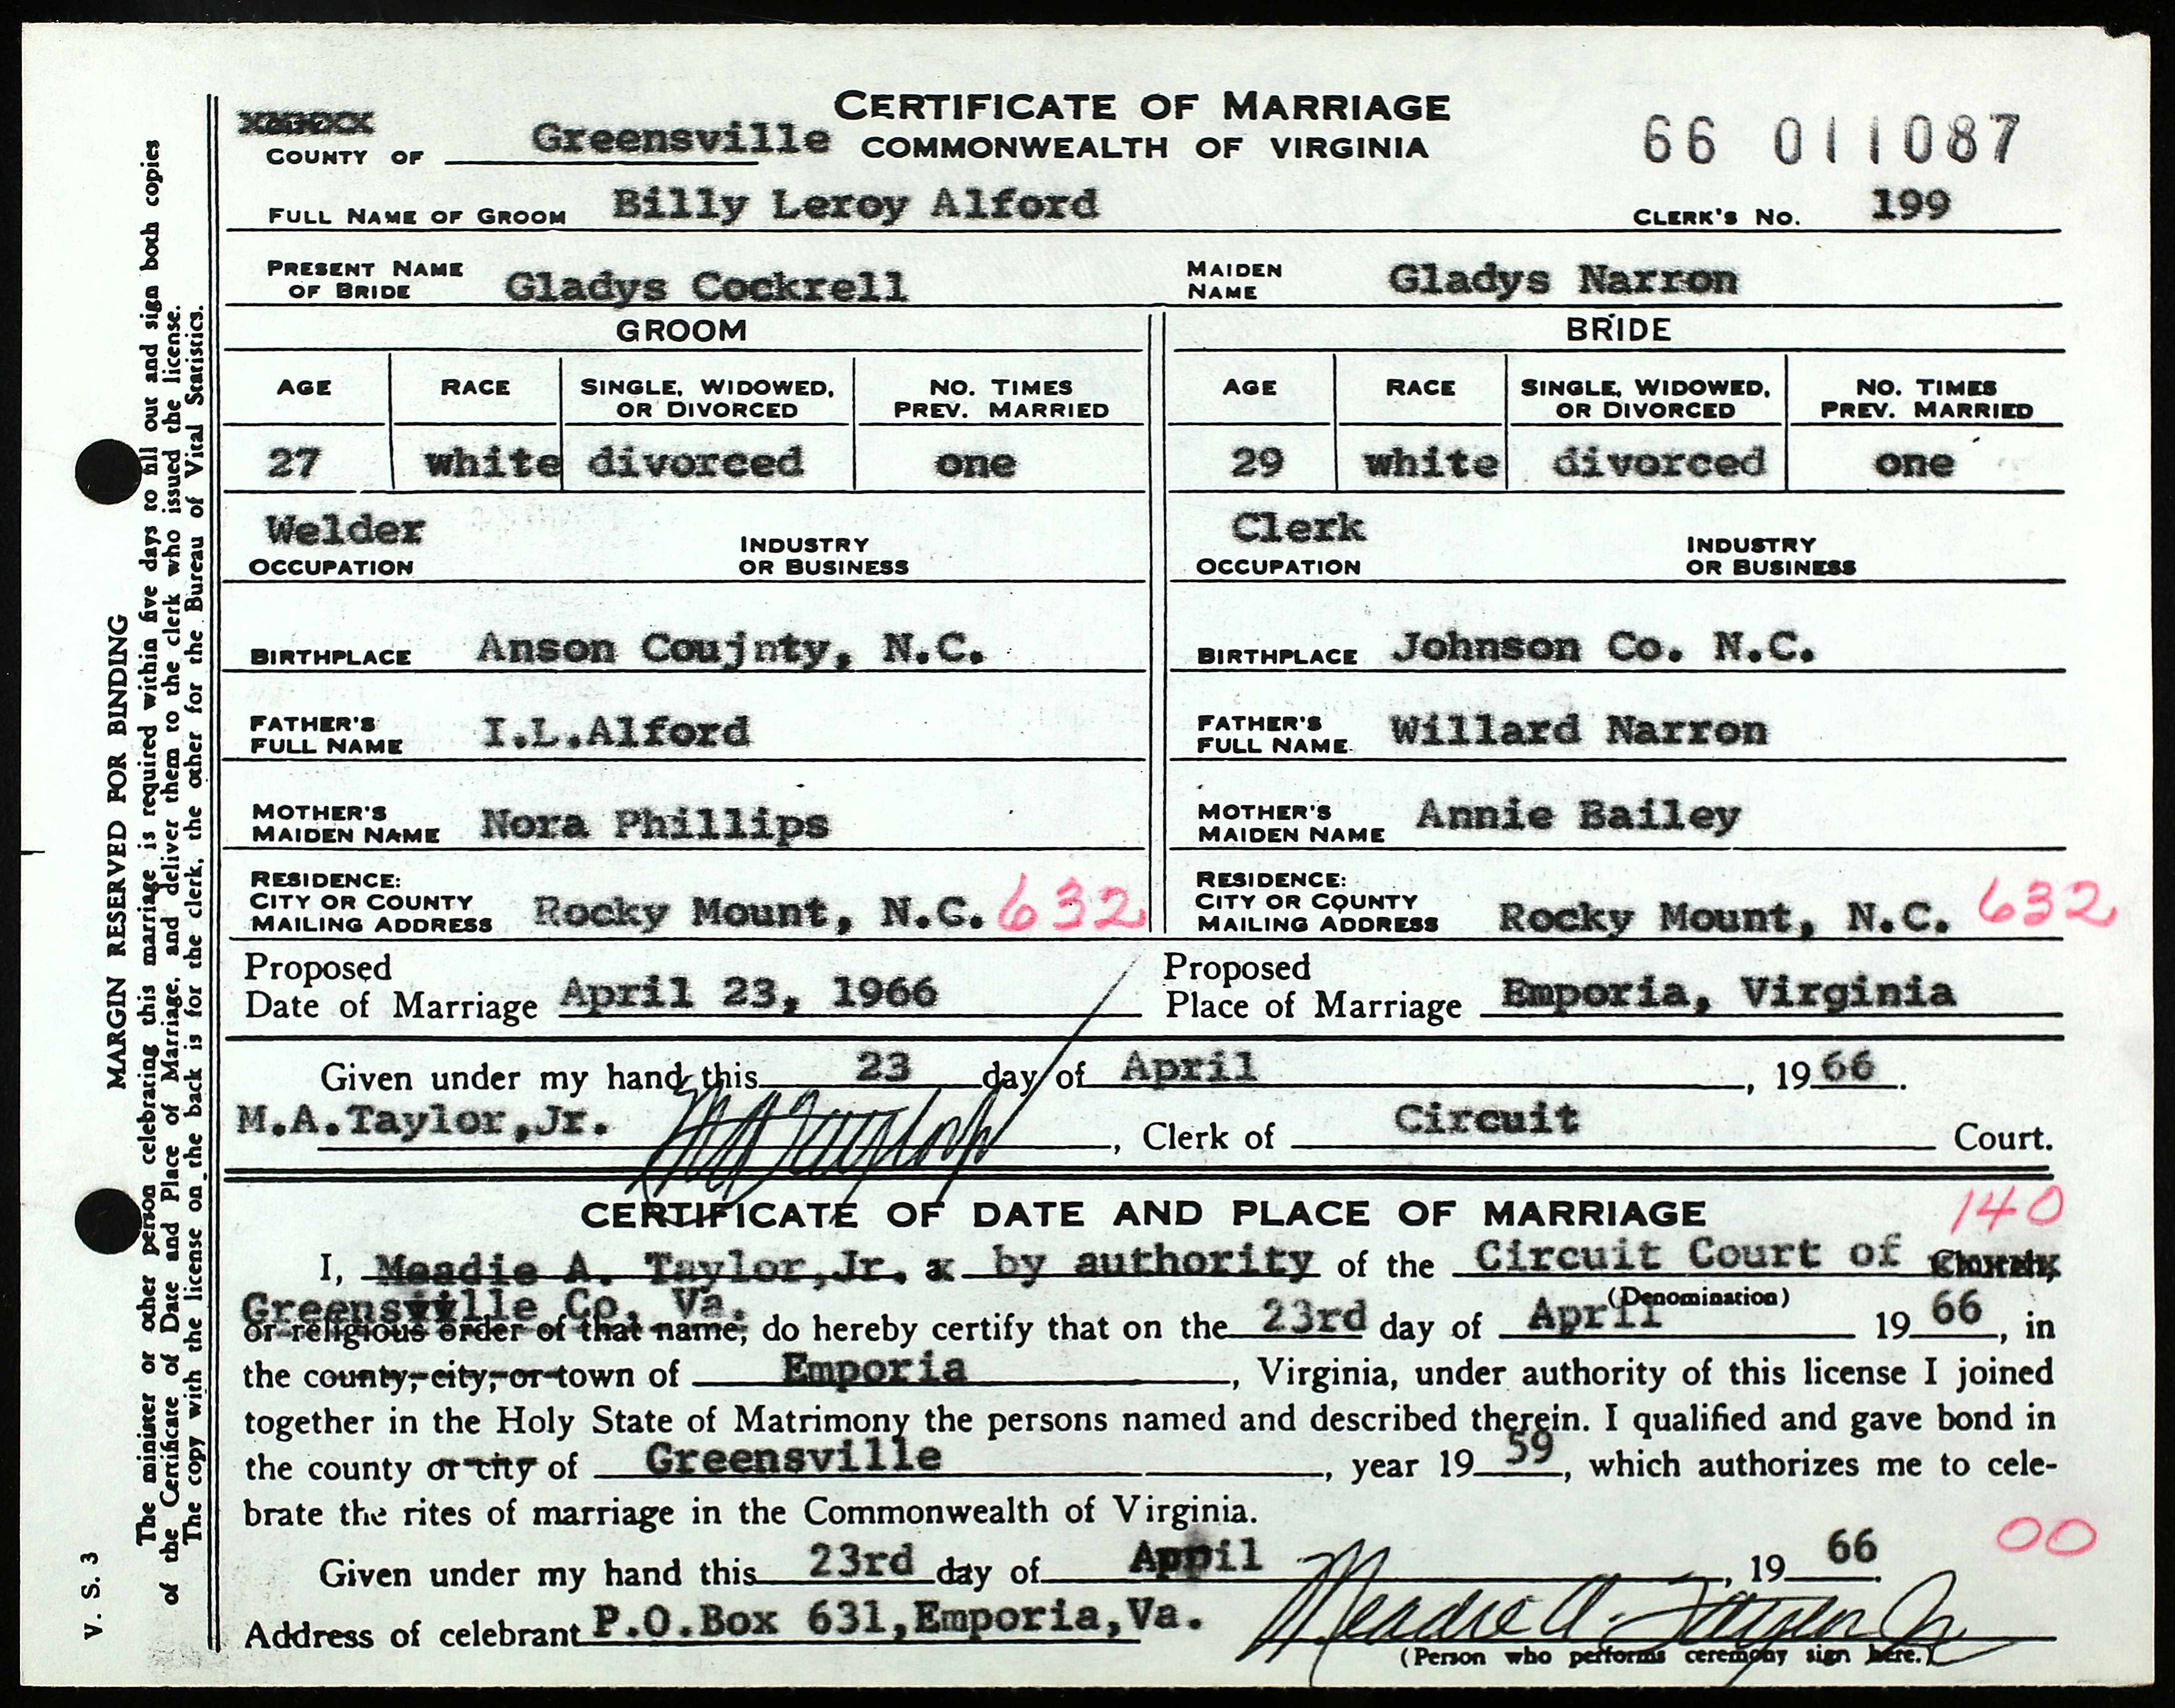 CERTIFICATE OF MARRIAGE
COUNTY OF Greensville COMMONWEALTH OF VIRGINIA 66 011087
FULL NAME OF GROOM Billy Leroy Alford CLERK'S NO. 199
PRESENT NAME OF BRIDE Gladys Cockrell MAIDEN NAME Gladys Narron
GROOM BRIDE
AGE RACE SINGLE, WIDOWED, OR DIVORCED NO. TIMES PREV. MARRIED AGE RACE SINGLE, WIDOWED, OR DIVORCED NO. TIMES PREV. MARRIED
27 white divorced one 29 white divorced one
Welder Clerk
OCCUPATION INDUSTRY OR BUSINESS OCCUPATION INDUSTRY OR BUSINESS
BIRTHPLACE Anson Coujnty, N.C. BIRTHPLACE Johnson Co. N.C.
FATHER'S FULL NAME I.L.Alford FATHER'S FULL NAME Willard Narron
MOTHER'S MAIDEN NAME Nora Phillips MOTHER'S MAIDEN NAME Annie Bailey
RESIDENCE: CITY OR COUNTY MAILING ADDRESS Rocky Mount, N.C. 632 RESIDENCE: CITY OR COUNTY MAILING ADDRESS Rocky Mount, N.C. 632
Proposed Date of Marriage April 23, 1966 Proposed Place of Marriage Emporia, Virginia
Given under my hand this 23 day of April, 1966.
M.A.Taylor,Jr. MA Taylor Jr, Clerk of Circuit Court.
CERTIFICATE OF DATE AND PLACE OF MARRIAGE 140
I, Meadie A. Taylor,Jr. x by authority of the Circuit Court of Church,
(Denomination)
Greensville Co. Va.
or religious order of that name, do hereby certify that on the 23rd day of April 1966, in
the county, city, or town of Emporia, Virginia, under authority of this license I joined
together in the Holy State of Matrimony the persons named and described therein. I qualified and gave bond in
the county or city of Greensville, year 1959, which authorizes me to cele-
brate the rites of marriage in the Commonwealth of Virginia.
00
Given under my hand this 23rd day of April, 1966.
Address of celebrant P.O.Box 631,Emporia,Va. Meadie A. Taylor Jr
(Person who performs ceremony sign here.)
MARGIN RESERVED FOR BINDING
The minister or other person celebrating this marriage is required within five days to fill out and sign both copies
of the Certificate of Date and Place of Marriage, and deliver them to the clerk who issued the license.
The copy with the license on the back is for the clerk, the other for the Bureau of Vital Statistics.
V. S. 3